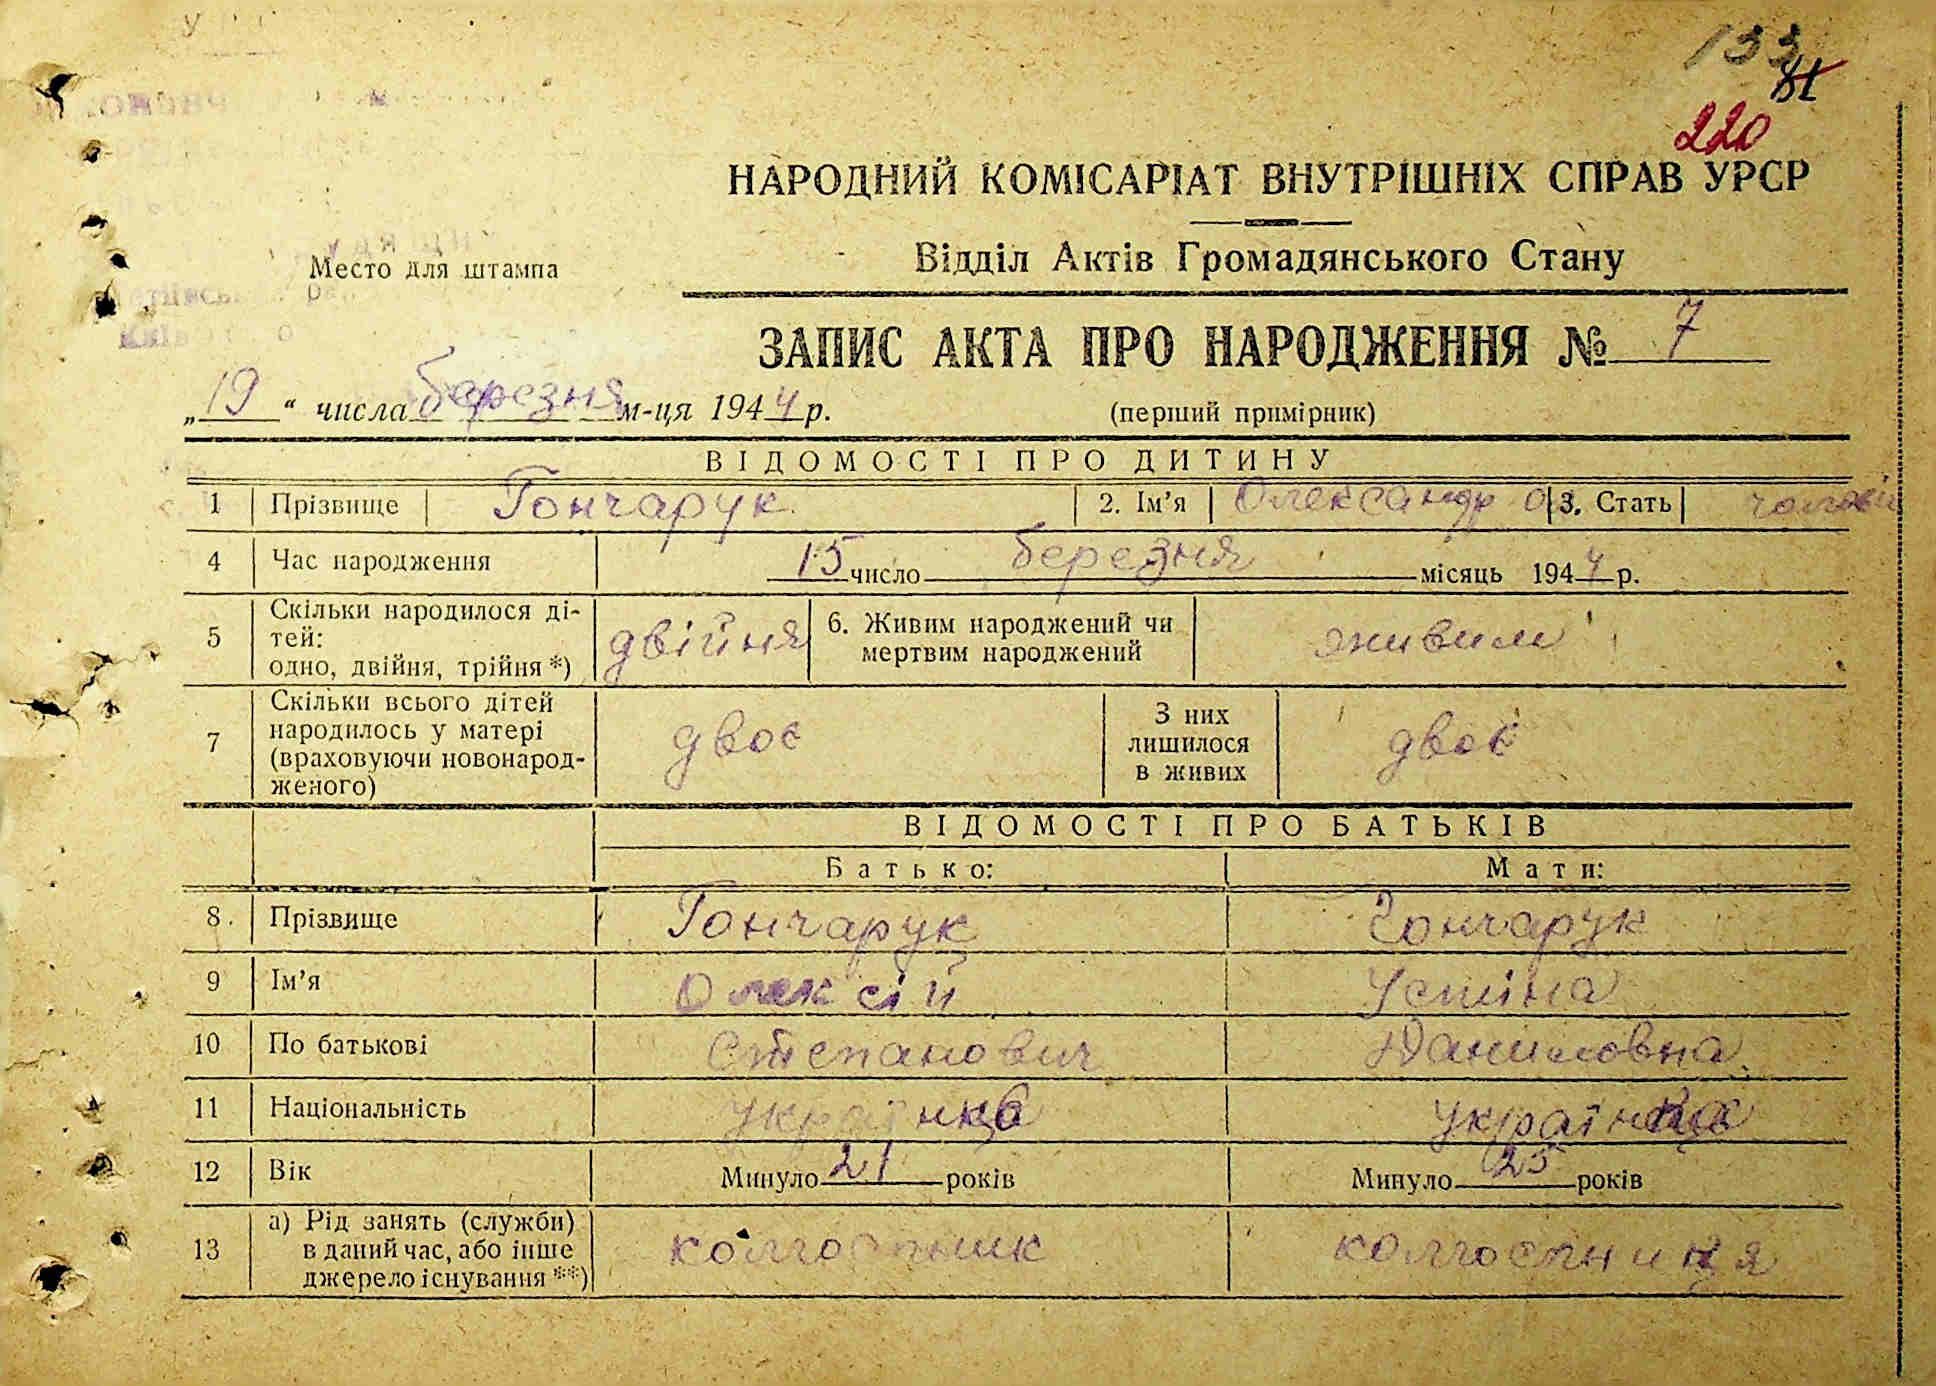 133
81
220
НАРОДНИЙ КОМІСАРІАТ ВНУТРІШНІХ СПРАВ УРСР
Відділ Актів Громадянського Стану
Место для штампа
ЗАПИС АКТА ПРО НАРОДЖЕННЯ № 7
„19“ числа березня м-ця 1944 р.
(перший примірник)
ВІДОМОСТІ ПРО ДИТИНУ
1 Прізвище Гончарук 2. Ім’я Олександр 3. Стать
4 Час народження 15 число березня місяць 1944 р.
5 Скільки народилося ді-
тей:
одно, двійня, трійня *) двійня
6. Живим народжений чи
мертвим народжений живим
7 Скільки всього дітей
народилось у матері
(враховуючи новонарод-
женого) двоє
З них
лишилося
в живих двоє
ВІДОМОСТІ ПРО БАТЬКІВ
Батько: Мати:
8. Прізвище Гончарук Гончарук
9 Ім’я Олексій Устіна
10 По батькові Степанович Даниловна
11 Національність
12 Вік Минуло 21 років Минуло 25 років
13 а) Рід занять (служби)
в даний час, або інше
джерело існування **) колгоспник колгоспниця